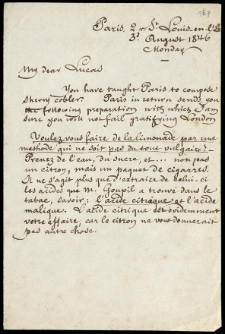 Paris, 2 r. St. Louis-en-l'Ile
3d August 1846
Monday
My dear Lucas
You have taught Paris to compose
sherry cobler. Paris in return sends you
the following preparation with which I am
sure you will not fail gratifying London
Voulez vous faire de la limonade par une
methode qui ne soit pas du tout vulgaire?
Prenez de l'eau, du sucre, et ... non pas
un citron, mais un paquet de cigares.
Il ne s'agit plus que d'extraire de celui-ci
les acides que M. Goupil a trouvé dans le
tabac, savoir: l'acide citrique et l'acide
malique. L'acide citrique est évidemment
votre affaire, car le citron ne vous donnerait
pas autre chose.